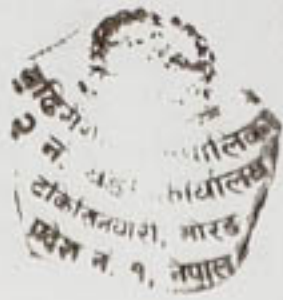 २ नं. वडा कार्यालय
टंकिसिनवारी, मोरङ
प्रदेश नं. १, नेपाल